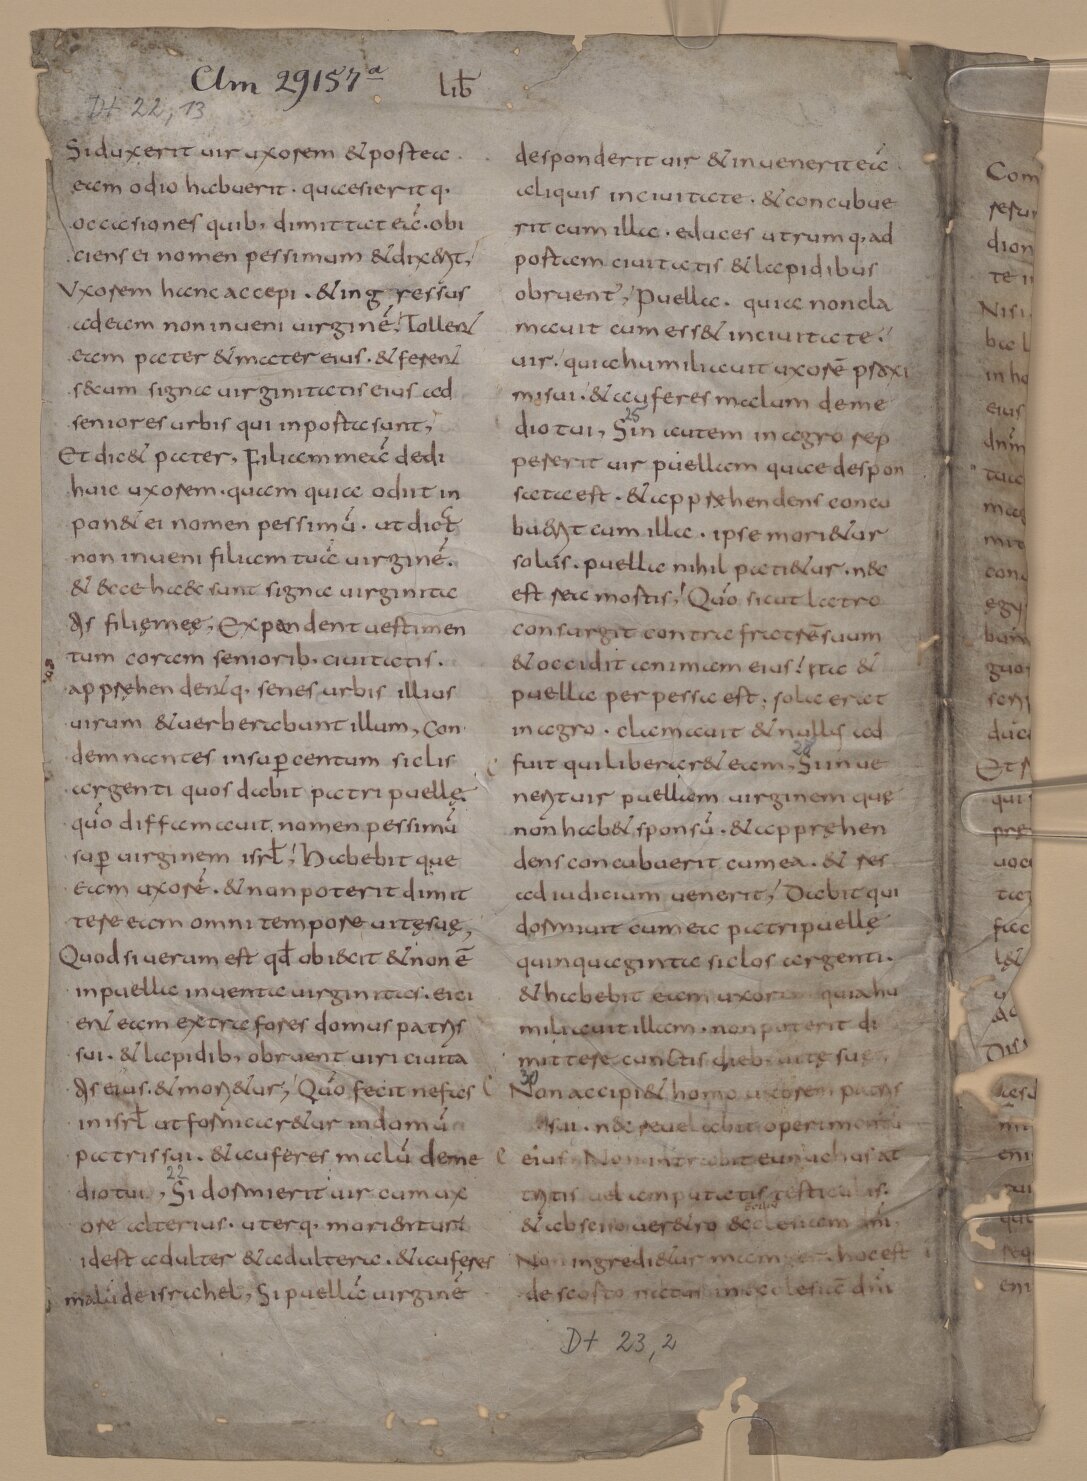 Clm 29157ª
lib̄
Dt 22, 13
Si duxerit uir uxorem & postea
eam odio habuerit · quaesieritq·
occasiones quib; dimittat eā · obi
ciens ei nomen pessimum & dix&it;
Vxorem hanc accepi · & ingressus
ad eam non inueni uirginē; Tollent
eam pater & mater eius · & ferent
s&cum signa uirginitatis eius ad
seniores urbis qui in porta sunt;
Et dic& pater, Filiam meā dedi
huic uxorem · quam quia odit in
pon& ei nomen pessimū · ut dicat
non inueni filiam tuā uirginē ·
& ecce haec sunt signa uirginita
tis filięmeę; Expandent uestimen
tum coram seniorib· ciuitatis ·
apprehendentq· senes urbis illius
uirum & uerberabunt illum, Con
demnantes insup centum siclis
argenti quos dabit patri puellę
qūo diffamauit nomen pessimū
sup uirginem isrl̄; Habebit que
eam uxorē · & non poterit dimit
tere eam omni tempore uitęsuę;
Quod si uerum est qd̄ obiecit & non ē
in puella inuenta uirginitas · eici
ent eam extra fores domus patris
sui · & lapidib; obruent uiri ciuita
tis eius · & mori&ur; Qūo fecit nefas
in isrl̄ ut fornicar&ur in domū
patris sui · & auferes malū deme
dio tui, 22 Si dormierit uir cum ux
ore alterius · uterq· morientur
id est adulter & adultera · & auferes
malū de israhel, Si puellā uirginē
desponderit uir & inuenerit eā
aliquis in ciuitate · & concubue
rit cum illa · educes utrumq· ad
portam ciuitatis & lapidibus
obruent; Puella · quia non cla
mauit cum ess& in ciuitate ·
uir · quia humiliauit uxorē proxi
mi sui · & auferes malum deme
dio tui, 25 Sin autem in agro rep
pererit uir puellam quae despon
sata est · & apprehendens concu
buerit cum illa · ipse mori&ur
solus · puella nihil pati&ur · nec
est rea mortis; Qūo sicut latro
consurgit contra fratrē suum
& occidit animam eius; ita &
puella perpessa est; sola erat
in agro · clamauit & nullus ad
fuit qui liberar& eam, 28 Si inue
nerit uir puellam uirginem quę
non hab& sponsū · & apprehen
dens concubuerit cum ea · & res
ad iudicium uenerit; Dabit qui
dormiuit cum ea patri puellę
quinquaginta siclos argenti ·
& habebit eam uxorem quia hu
miliauit illam · non poterit di
mittere cunctis dieb· uitę suę;
30 Non accipi& homo uxorem patris
sui · nec reuelabit operimentū
eius Non intrabit eunuchus at
tritis uel amputatis testiculis ·
& absciso ueretro ecclesiam dn̄i
Non ingredi&ur mamzer · hoc est
de scorto natus in ecclesiā dn̄i
Dt 23, 2
Com
dion
te i
Nisi
in ho
eius
dn̄m
tuae
con
egy
quos
Et
qui
uoc
eni
eni